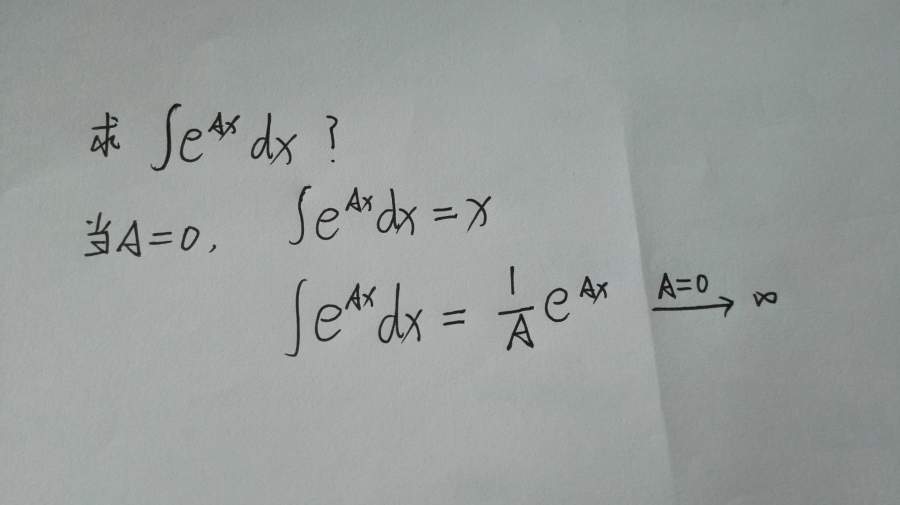 求 ∫e^{Ax} dx ?
当A=0, ∫e^{Ax}dx = x
∫e^{Ax}dx = \frac{1}{A} e^{Ax} \xrightarrow{A=0} ∞